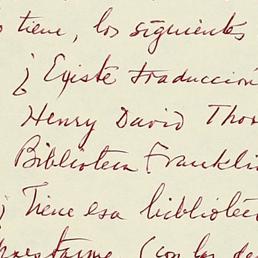 tiene, los siguientes
¿Existe traducción
Henry David Thor
Biblioteca Franklin
¿Tiene esa bibliotec
prestarme (con los de